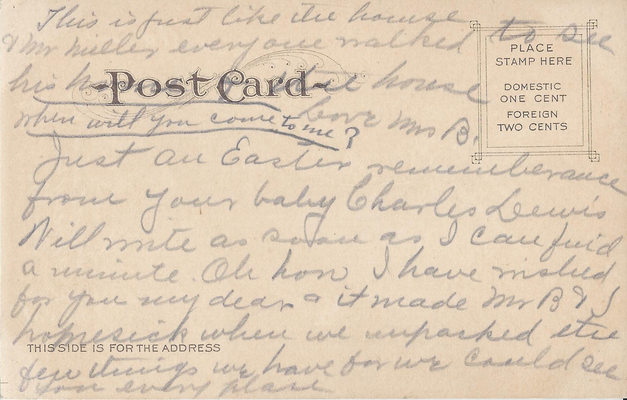 This is just like the house
& Mr Miller everyone walked to see
his house
Post Card
house
Love Mrs B.
when will you come to me?
PLACE
STAMP HERE
DOMESTIC
ONE CENT
FOREIGN
TWO CENTS
Just an Easter rememberance
from your baby Charles Lewis
Will write as soon as I can find
a minute. Oh hon I have wished
for you my dear & it made Mr B & I
homesick when we unpacked the
THIS SIDE IS FOR THE ADDRESS
few things we have for we could see
you every place